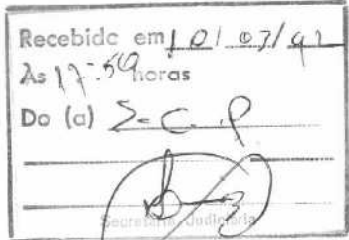 Recebido em 10/03/92
Às 17:50 horas
Do (a) S.C.P
Secretaria Judiciária